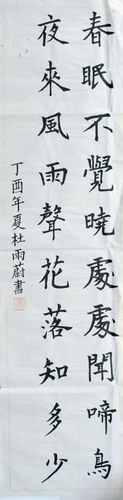 春眠不覺曉處處聞啼鳥
夜來風雨聲花落知多少
丁酉年夏杜雨蔚書